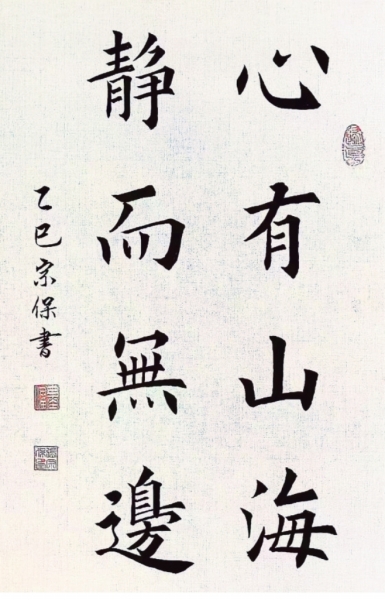 心有山海
静而無邊
乙巳宗保書